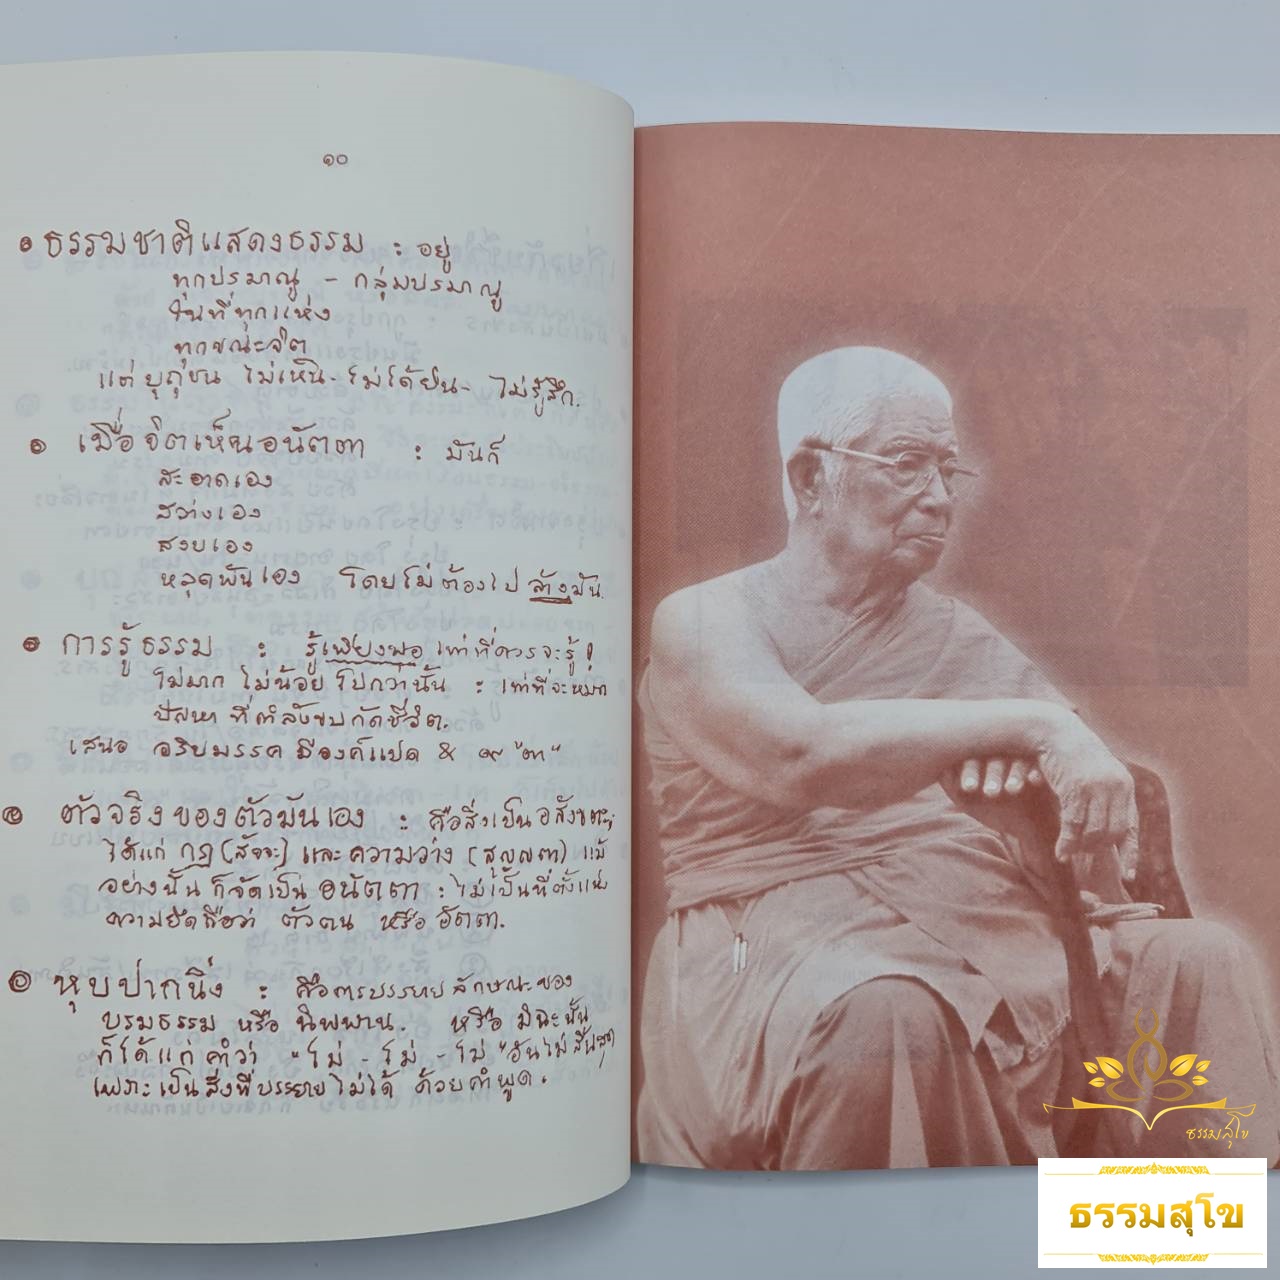 ๑๐
ธรรมชาติแสดงธรรม : อยู่
ทุกปรมาณู - กลุ่มปรมาณู
ในที่ทุกแห่ง
ทุกขณะจิต
แต่ บุถุชน ไม่เห็น - ไม่ได้ยิน - ไม่รู้สึก.
เมื่อจิตเห็นอนัตตา : มันก็
สะอาดเอง
สว่างเอง
สงบเอง
หลุดพ้นเอง โดยไม่ต้องไป ล้างมัน.
การรู้ธรรม : รู้เพียงพอ เท่าที่ควรจะรู้!
ไม่มาก ไม่น้อย ไปกว่านั้น : เท่าที่จะหมด
ปัญหา ที่กำลังขบกัดชีวิต.
เสนอ อริยมรรค มีองค์แปด & ๙ "ตา"
ตัวจริงของตัวมันเอง : คือสิ่งเป็นอสังขตะ,
ได้แก่ กฎ (สัจจะ) และความว่าง (สุญญตา) แม้
อย่างนั้น ก็จัดเป็น อนัตตา : ไม่เป็นที่ตั้งแห่ง
ความยึดถือว่า ตัวตน หรือ อัตตา.
หุบปากนิ่ง : คือการบรรยาย ลักษณะของ
บรมธรรม หรือ นิพพาน. หรือ มิฉะนั้น
ก็ได้แก่ คำว่า "ไม่ - ไม่ - ไม่" อันไม่สิ้นสุด
เพราะเป็นสิ่งที่บรรยายไม่ได้ ด้วยคำพูด.
ธรรมสุโข
ธรรมสุโข